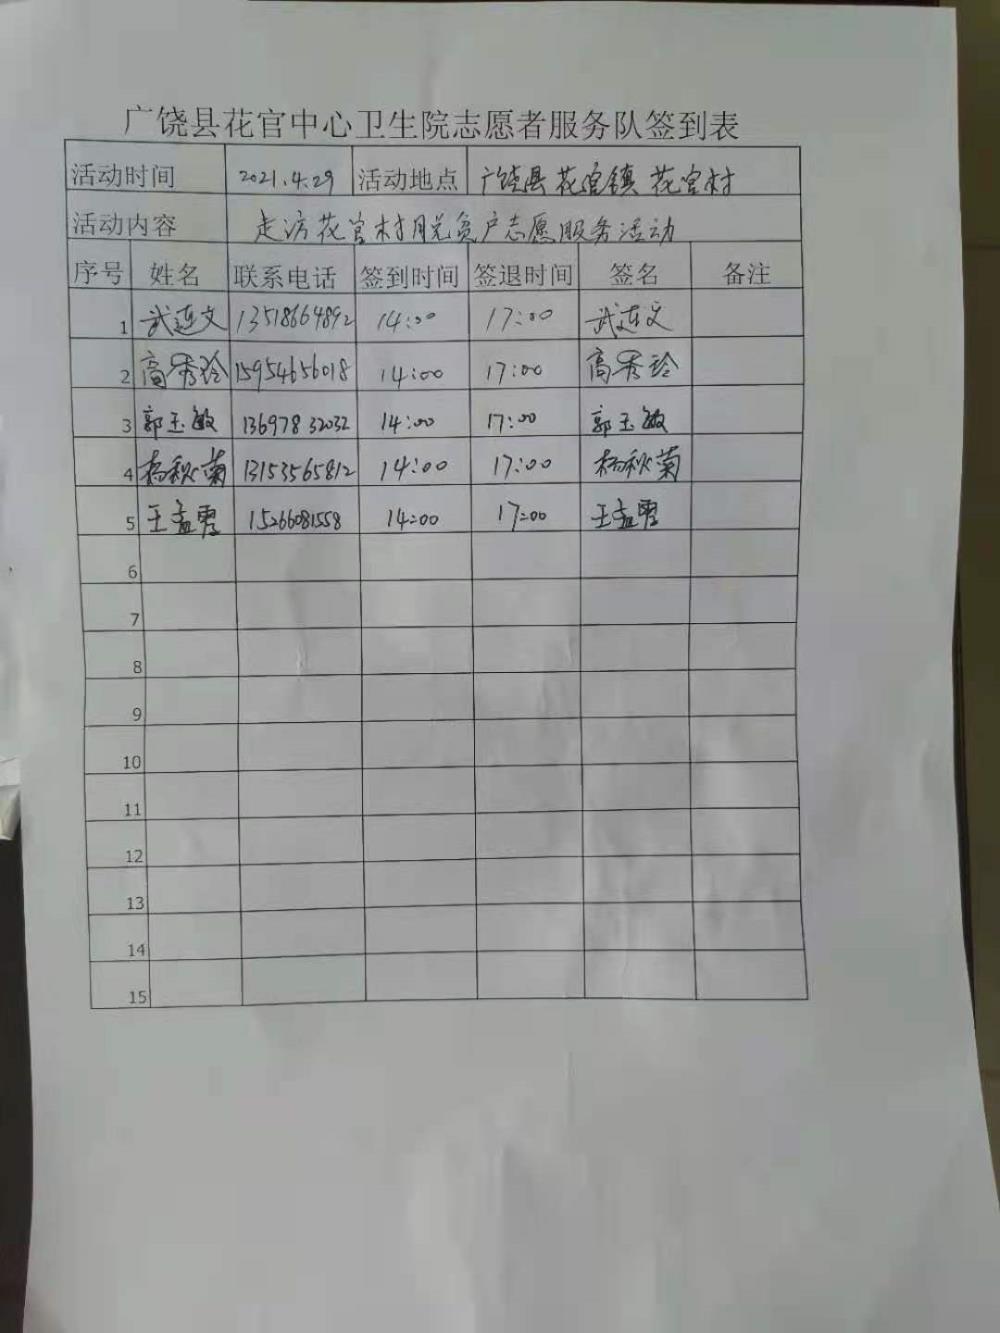 广饶县花官中心卫生院志愿者服务队签到表
活动时间 2021.4.29 活动地点 广饶县花官镇花官村
活动内容 走访花官村脱贫户志愿服务活动
序号 姓名 联系电话 签到时间 签退时间 签名 备注
1 武连文 13518664892 14:00 17:00 武连文
2 高秀玲 15954656018 14:00 17:00 高秀玲
3 郭玉敏 13697832032 14:00 17:00 郭玉敏
4 杨秋菊 13153565812 14:00 17:00 杨秋菊
5 王孟 15266081558 14:00 17:00 王孟
6
7
8
9
10
11
12
13
14
15